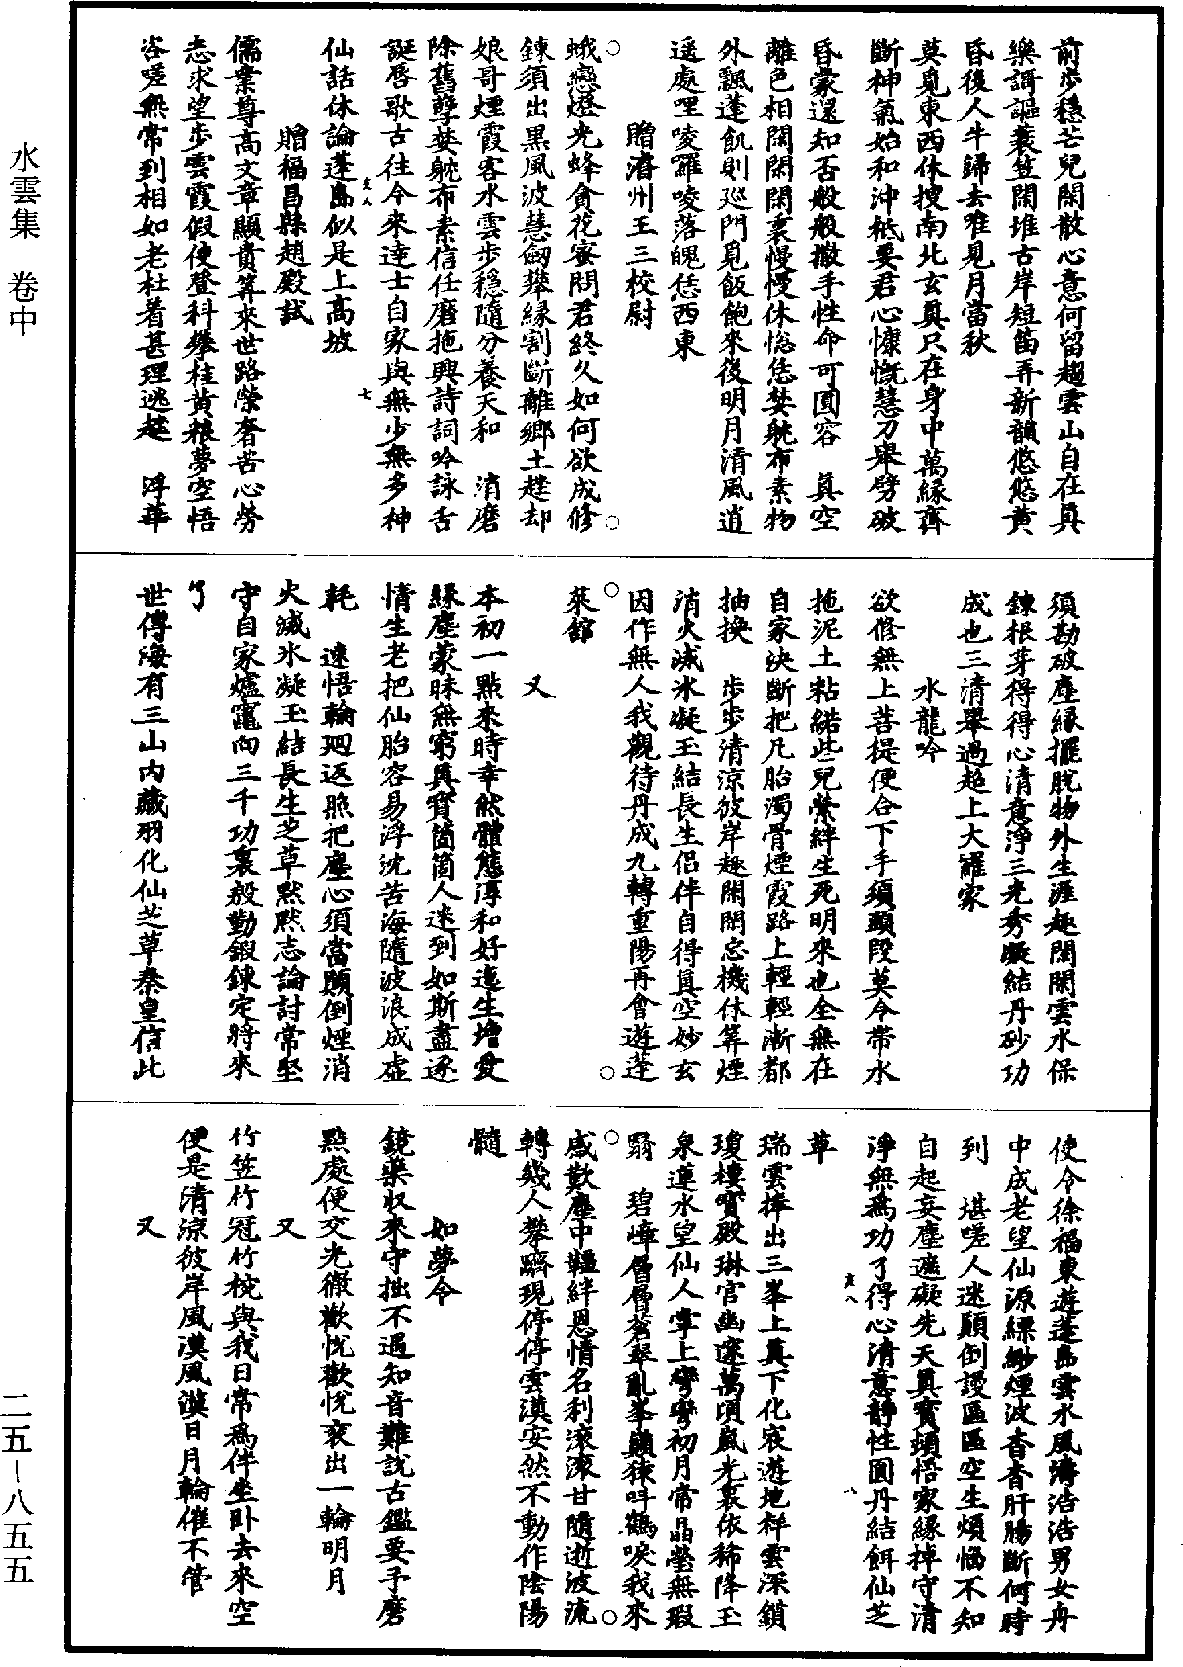 前步穩芒兒閑散心意何留趨雲山自在真
樂謌謳蓑笠閑堆古岸短笛弄新韻悠悠黃
昏後人牛歸去唯見月當秋
莫覓東西休搜南北玄真只在身中萬緣齊
斷神氣始和沖柢要君心慷慨慧刀舉劈破
昏蒙還知否般般撒手性命可圓容　真空
離色相閑閑閑裏慢慢休惚恁婪躭布素物
外飄蓬飢則巡門覓飯飽來後明月清風逍
遥處哩唛囉唛落魄恁西東
贈濬州王三校尉
蛾戀燈光蜂貪花蜜問君終久如何欲成修
鍊須出黑風波慧劒舉緣割斷離鄉土趕却
娘哥煙霞客水雲步穩隨分養天和　消磨
除舊孽婪躭布素信任磨拖興詩詞吟詠舌
誕唇歌古往今來達士自家與無少無多神
仙話休論蓬島似是上高坡
贈福昌縣趙殿試
儒業尊高文章顯貴算來世路榮奢苦心勞
志求望步雲霞假使登科攀桂黃粮夢空悟
咨嗟無常到相如老杜着甚理逃趓　浮華
須勘破塵緣擺脫物外生涯趣閑閑雲水保
鍊根芽得得心清意淨三光秀凝結丹砂功
成也三清舉過超上大羅家
水龍吟
欲修無上菩提便合下手須頭段莫令帶水
拖泥土粘綰些兒縈絆生死明來也全無在
自家決斷把凡胎濁骨煙霞路上輕輕漸都
抽換　步步清涼彼岸趣閑閑忘機休筭煙
消火滅氷凝玉結長生侶伴自得真空妙玄
因作無人我觀待丹成九轉重陽再會遊蓬
萊舘
又
本初一點來時幸然體態淳和好遠生增愛
緣塵蒙昧無窮真寶箇箇人迷到如斯盡逐
情生老把仙胎容易浮沈苦海隨波浪成虛
耗　速悟輪迴返照把塵心須當顛倒煙消
火滅氷凝玉結長生芝草默默志論討常堅
守自家爐竈向三千功裏殷勤鍜鍊定將來
了
世傳海有三山內藏羽化仙芝草秦皇信此
使令徐福東遊蓬島雲水風濤浩浩男女舟
中成老望仙源縹緲煙波杳杳肝腸斷何時
到　堪嗟人迷顛倒謾區區空生煩惱不知
自起妄塵遮礙先天真寶頓悟家緣掉守清
淨無為功了得心清意靜性圓丹結餌仙芝
草
瑞雲捧出三峯上真下化宸遊地祥雲深鎖
瓊樓寶殿琳宮幽邃萬頃嵐光裏依稀降玉
泉蓮水望仙人掌上彎彎初月常晶瑩無瑕
翳　碧嶂層層蒼翠亂峯巔猿呌鶴唳我來
感歎塵中韁絆恩情名利滾滾甘隨逝波流
轉幾人攀躋現停停雲漢安然不動作陰陽
髓
如夢令
鏡藥収來守拙不遇知音難說古鑑要予磨
點處便交光徹歡悅歡悅衮出一輪明月
又
竹笠竹冠竹枕與我日常為伴坐卧去來空
便是清涼彼岸風漢風漢日月輪催不管
又
水雲集　卷中
二五－八五五